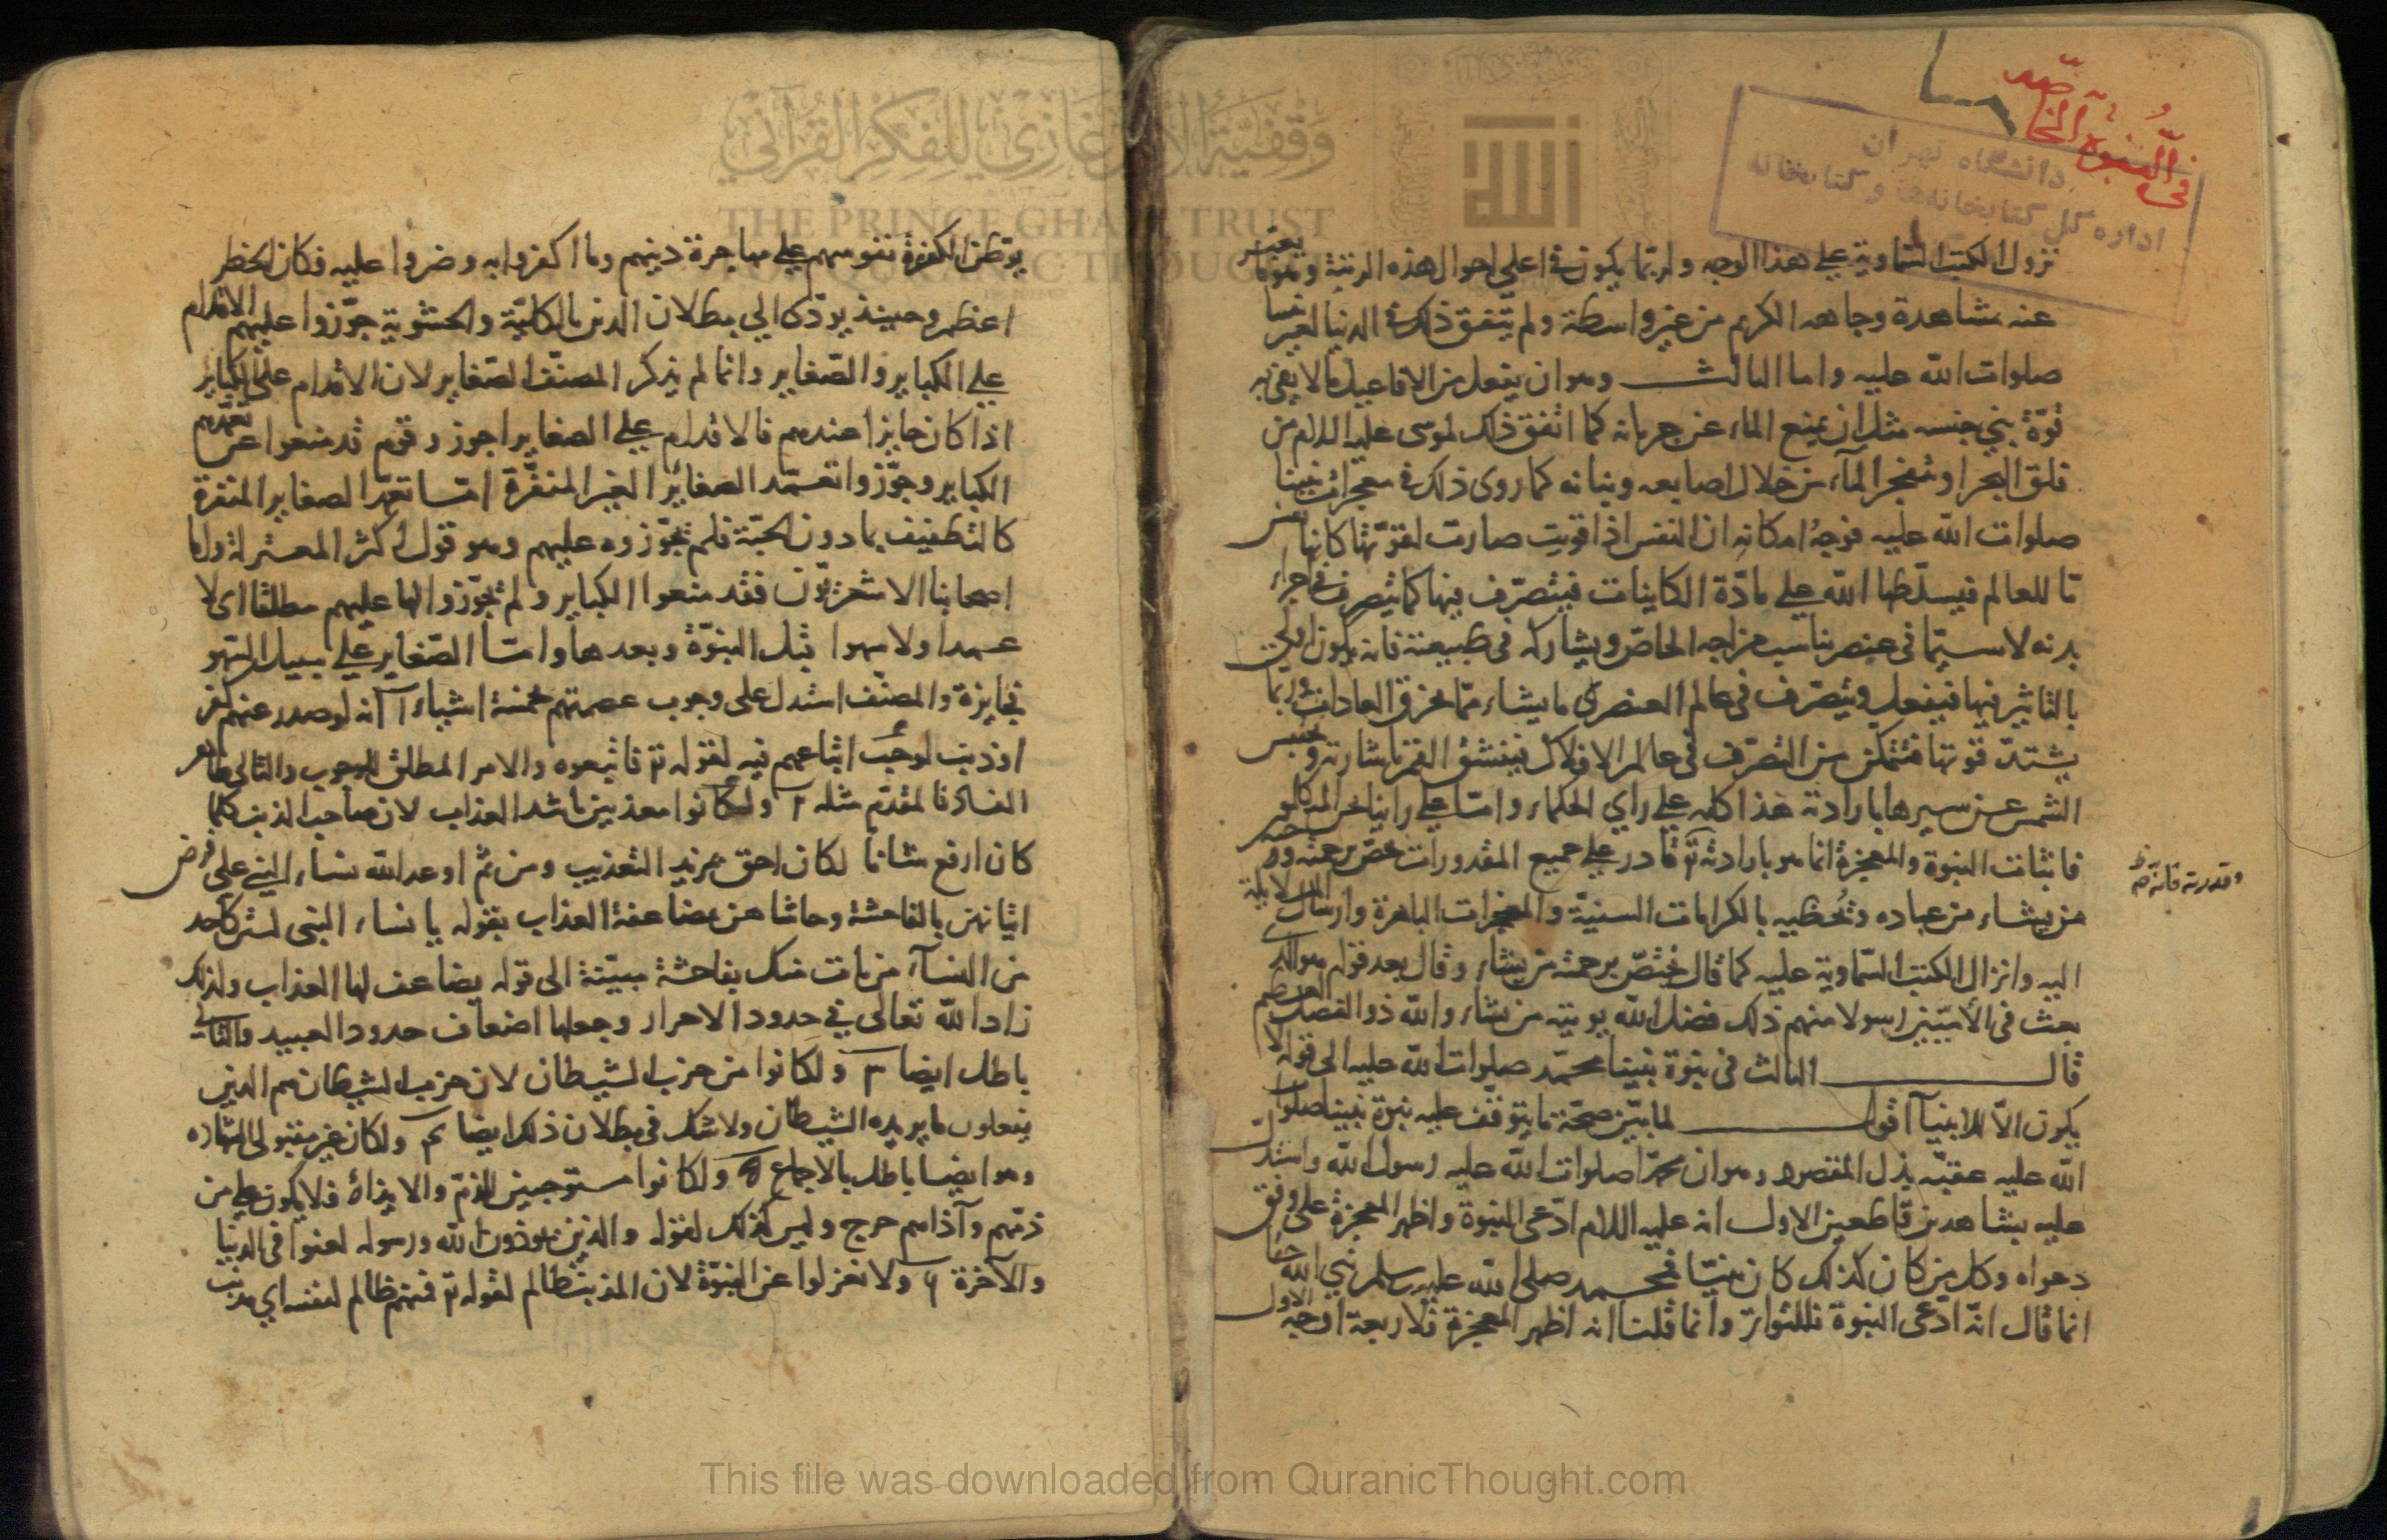 في النبوة الخاصة
دانشگاه تهران
اداره كل كتابخانه‌ها و كتابخانه
وقفية الأمير غازي للفكر القرآني
THE PRINCE GHAZI TRUST
QURANIC THOUGHT
نزول الكتب السماوية على هذا الوجه وربما يكون في اعلى احوال هذه الرتبة وهو ما يعبر
عنه مشاهدة وجاهه الكريم من غير واسطة ولم يتفق ذلك في الدنيا لغير نبينا
صلوات الله عليه واما الثالث وهو ان يفعل من الافاعيل ما لا يفي به
قوة بني جنسه مثل ان يمنع الماء عن جريانه كما اتفق ذلك لموسى عليه السلام من
فلق البحر او تفجر الماء من خلال اصابعه وبنانه كما روى ذلك في معجزات نبينا
صلوات الله عليه فوجه امكانه ان النفس اذا قويت صارت لقوتها كانها نفس
ما للعالم فيسلطها الله على مادة الكاينات فيتصرف فيها كما يتصرف في اجزاء
بدنه لا سيما في عنصر يناسب مزاجه الخاص ويشاركه في طبيعته فانه يكون اليق
بالتاثير فيها فيفعل ويتصرف في عالم العنصرى ما يشاء مما يخرق العادات وربما
يشتد قوتها فتتمكن من التصرف في عالم الافلاك فينشق القمر باشارته ويحبس
الشمس عن سيرها بارادته هذا كله على راي الحكماء واما على راينا
فاثبات النبوة والمعجزة انما هو بارادته تع قادر على جميع المقدورات
وقدرته فانه تع صح
من يشاء من عباده ويحظيه بالكرامات السنية والمعجزات الباهرة وارسال الملائكة
اليه وانزال الكتب السماوية عليه كما قال يختص برحمته من يشاء وقال بعد قوله هو الذى
بعث في الأميين رسولا منهم ذلك فضل الله يوتيه من يشاء والله ذو الفضل العظيم
قال الثالث في نبوة نبينا محمد صلوات الله عليه الى قوله لا
يكون الا للانبيآ اقول لما بين صحة ما يتوقف عليه نبوة نبينا صلوات
الله عليه عقبه بذل المقصود وهو ان محمدا صلوات الله عليه رسول الله واستدل
عليه بشاهدين قاطعين الاول انه عليه السلام ادعى النبوة واظهر المعجزة على وفق
دعواه وكل من كان كذلك كان نبيا فمحمد صلى الله عليه وسلم نبي الله حقا
انما قال انه ادعى النبوة للتواتر وانما قلنا انه اظهر المعجزة فلاربعة اوجه الاول
يوطن الكفرة نفوسهم على مهاجرة دينهم وما اكفروا به وضروا عليه فكان الخطر
اعظم وحينئذ يؤدى الي بطلان الدين بالكلية والحشوية جوزوا عليهم الاقدام
على الكباير والصغاير وانما لم يذكر المصنف الصغاير لان الاقدام على الكباير
اذا كان جايزا عندهم فالاقدام على الصغاير اجوز وقوم قد منعوا عن تعمدهم
الكباير وجوزوا تعمد الصغائر الغير المنفرة اما تعمد الصغاير المنفرة
كالتطفيف بما دون الحبة فلم يجوزوه عليهم وهو قول اكثر المعتزلة واما
اصحابنا الاشعريون فقد منعوا الكباير ولم يجوزوا لها عليهم مطلقا اى لا
عمدا ولا سهوا قبل النبوة وبعدها واما الصغاير على سبيل السهو
فجايزة والمصنف استدل على وجوب عصمتهم بخمسة اشياء ا انه لو صدر عنهم كفر
او ذنب لوجب اتباعهم فيه لقوله تع فاتبعوه والامر المطلق للوجوب والتالى ظاهر
الفساد فالمقدم مثله ٢ ولكانوا معذبين باشد العذاب لان صاحب الذنب كلما
كان ارفع شانا لكان احق بمزيد التعذيب ومن ثم اوعد الله نساء النبي على فرض
اتيانهن بالفاحشة وحاشا هن مضاعفة العذاب بقوله يا نساء النبى لستن كاحد
من النسآء من يات منكن بفاحشة مبينة الى قوله يضاعف لها العذاب ولذلك
زاد الله تعالى في حدود الاحرار وجعلها اضعاف حدود العبيد والتالى
باطل ايضا ٣ ولكانوا من حزب الشيطان لان حزب الشيطان هم الذين
يفعلون ما يريده الشيطان ولا شك في بطلان ذلك ايضا ٤ ولكان غير مقبولى الشهاده
وهو ايضا باطل بالاجماع ٥ ولكانوا مستوجبين للذم والايذاء فلا يكون على من
ذمهم وآذاهم حرج وليس كذلك لقوله والذين يوذون الله ورسوله لعنوا في الدنيا
والآخرة ٦ ولانعزلوا عن النبوة لان المذنب ظالم لقوله تع فمنهم ظالم لنفسه اي مذنب
This file was downloaded from QuranicThought.com